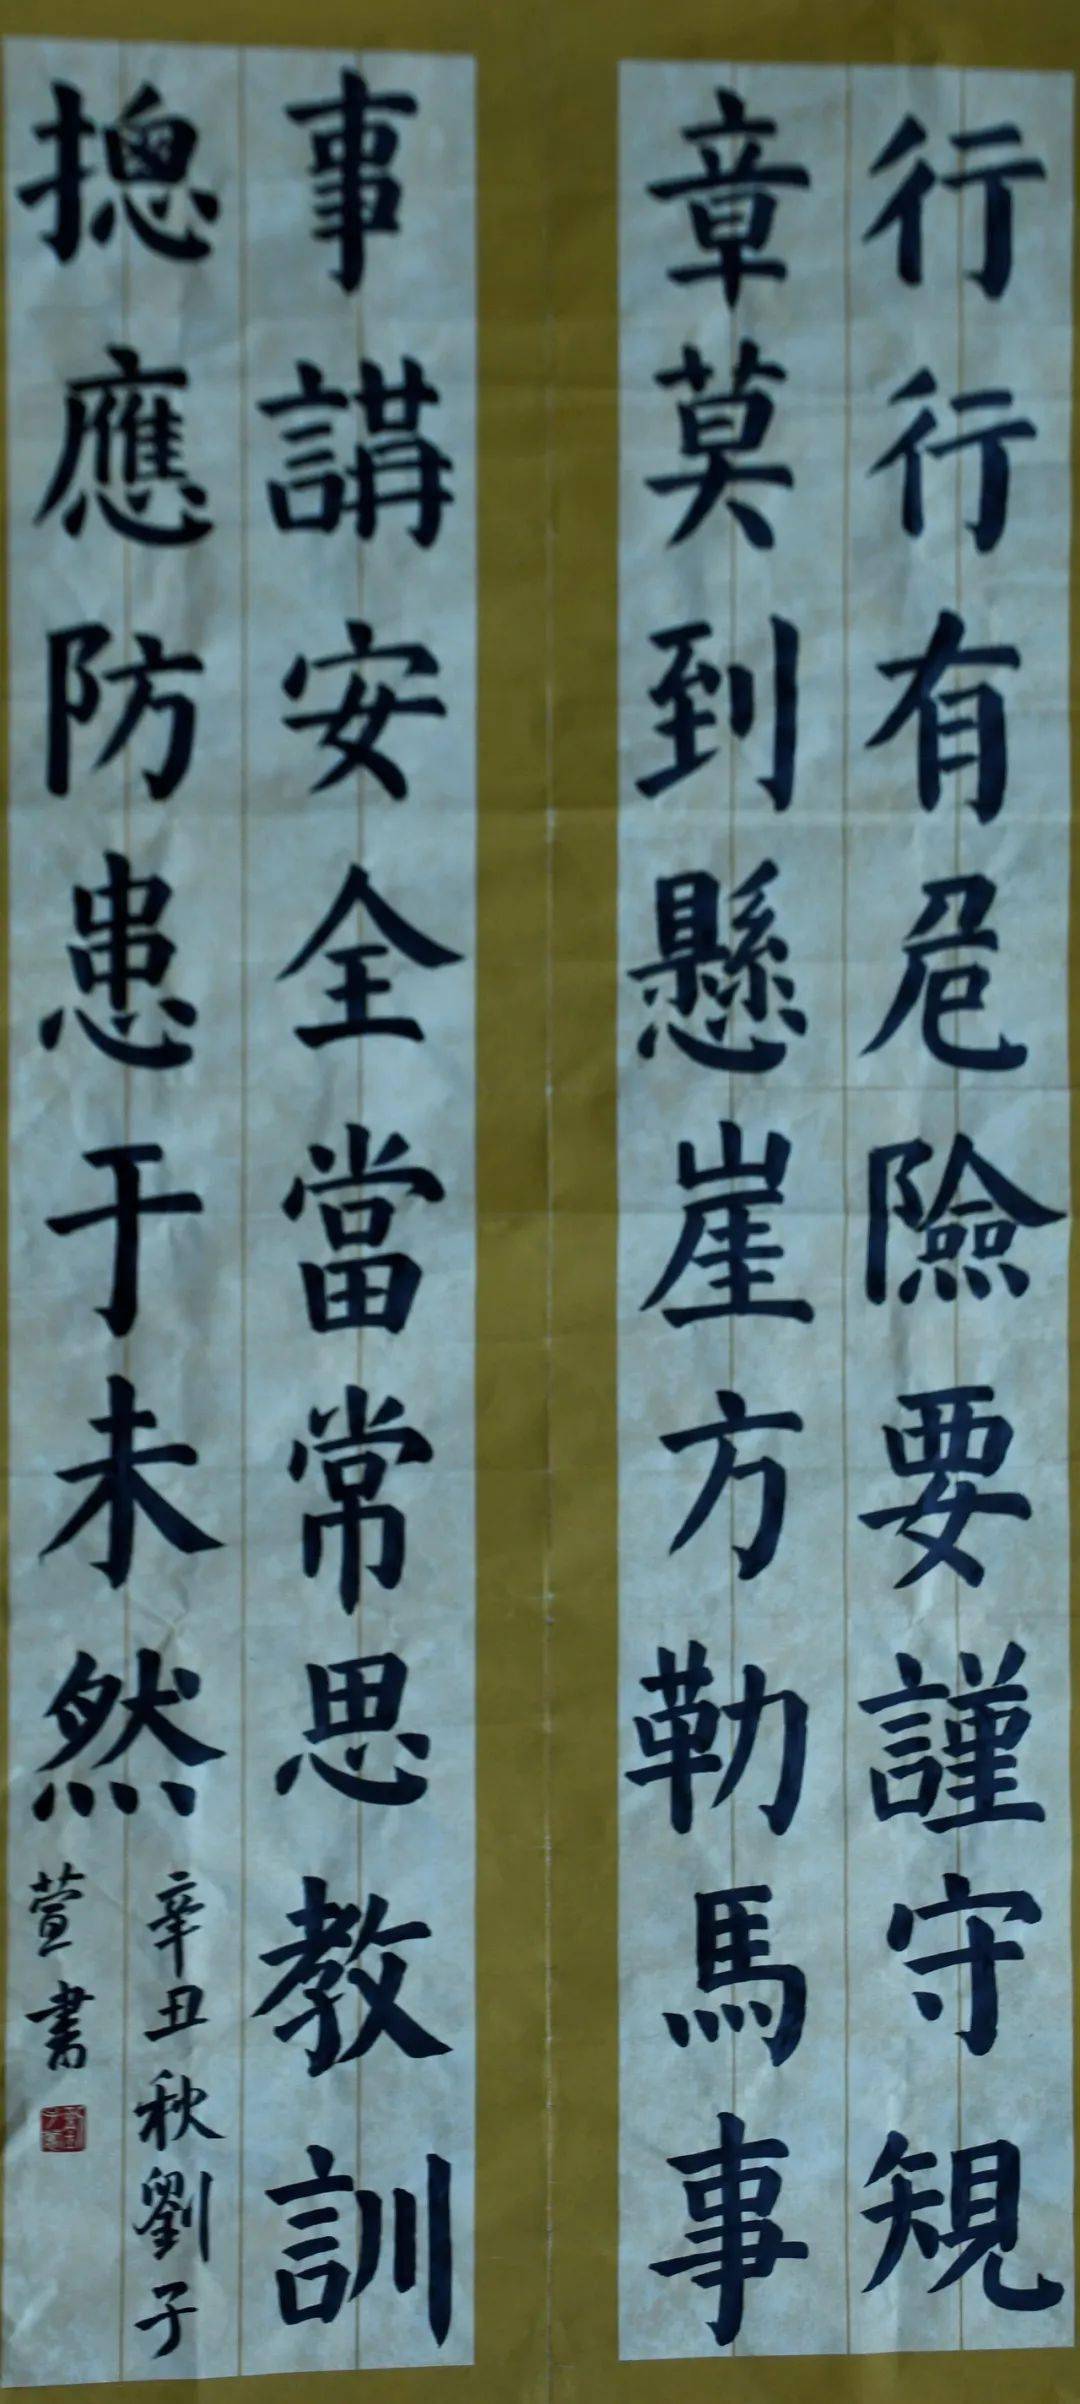 行行有危險要謹守規
章莫到懸崖方勒馬事
事講安全當常思教訓
揔應防患于未然
辛丑秋劉子
萱書